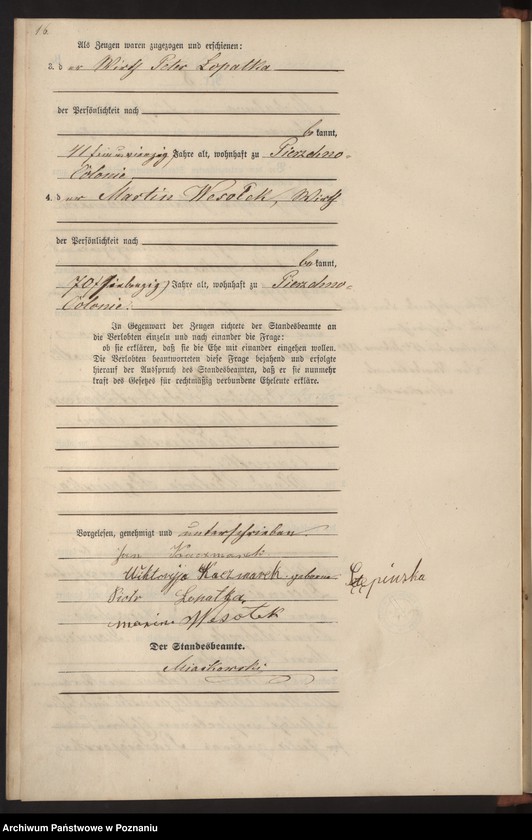 16.
Als Zeugen waren zugezogen und erschienen:
3. der Wirth Peter Lopatka
der Persönlichkeit nach
bekannt,
41 (einundvierzig) Jahre alt, wohnhaft zu Pierzchno-
Colonie
4. der Martin Wesołek, Wirth
der Persönlichkeit nach
bekannt,
70 (siebenzig) Jahre alt, wohnhaft zu Pierzchno-
Colonie.
In Gegenwart der Zeugen richtete der Standesbeamte an
die Verlobten einzeln und nach einander die Frage:
ob sie erklären, daß sie die Ehe mit einander eingehen wollen.
Die Verlobten beantworteten diese Frage bejahend und erfolgte
hierauf der Ausspruch des Standesbeamten, daß er sie nunmehr
kraft des Gesetzes für rechtmäßig verbundene Eheleute erkläre.
Vorgelesen, genehmigt und unterschrieben.
Jan Kaczmarek
Wiktoryja Kaczmarek geborne
Piotr Lopatka,
Wesołek
Der Standesbeamte.
Miaskowski
Archiwum Państwowe w Poznaniu